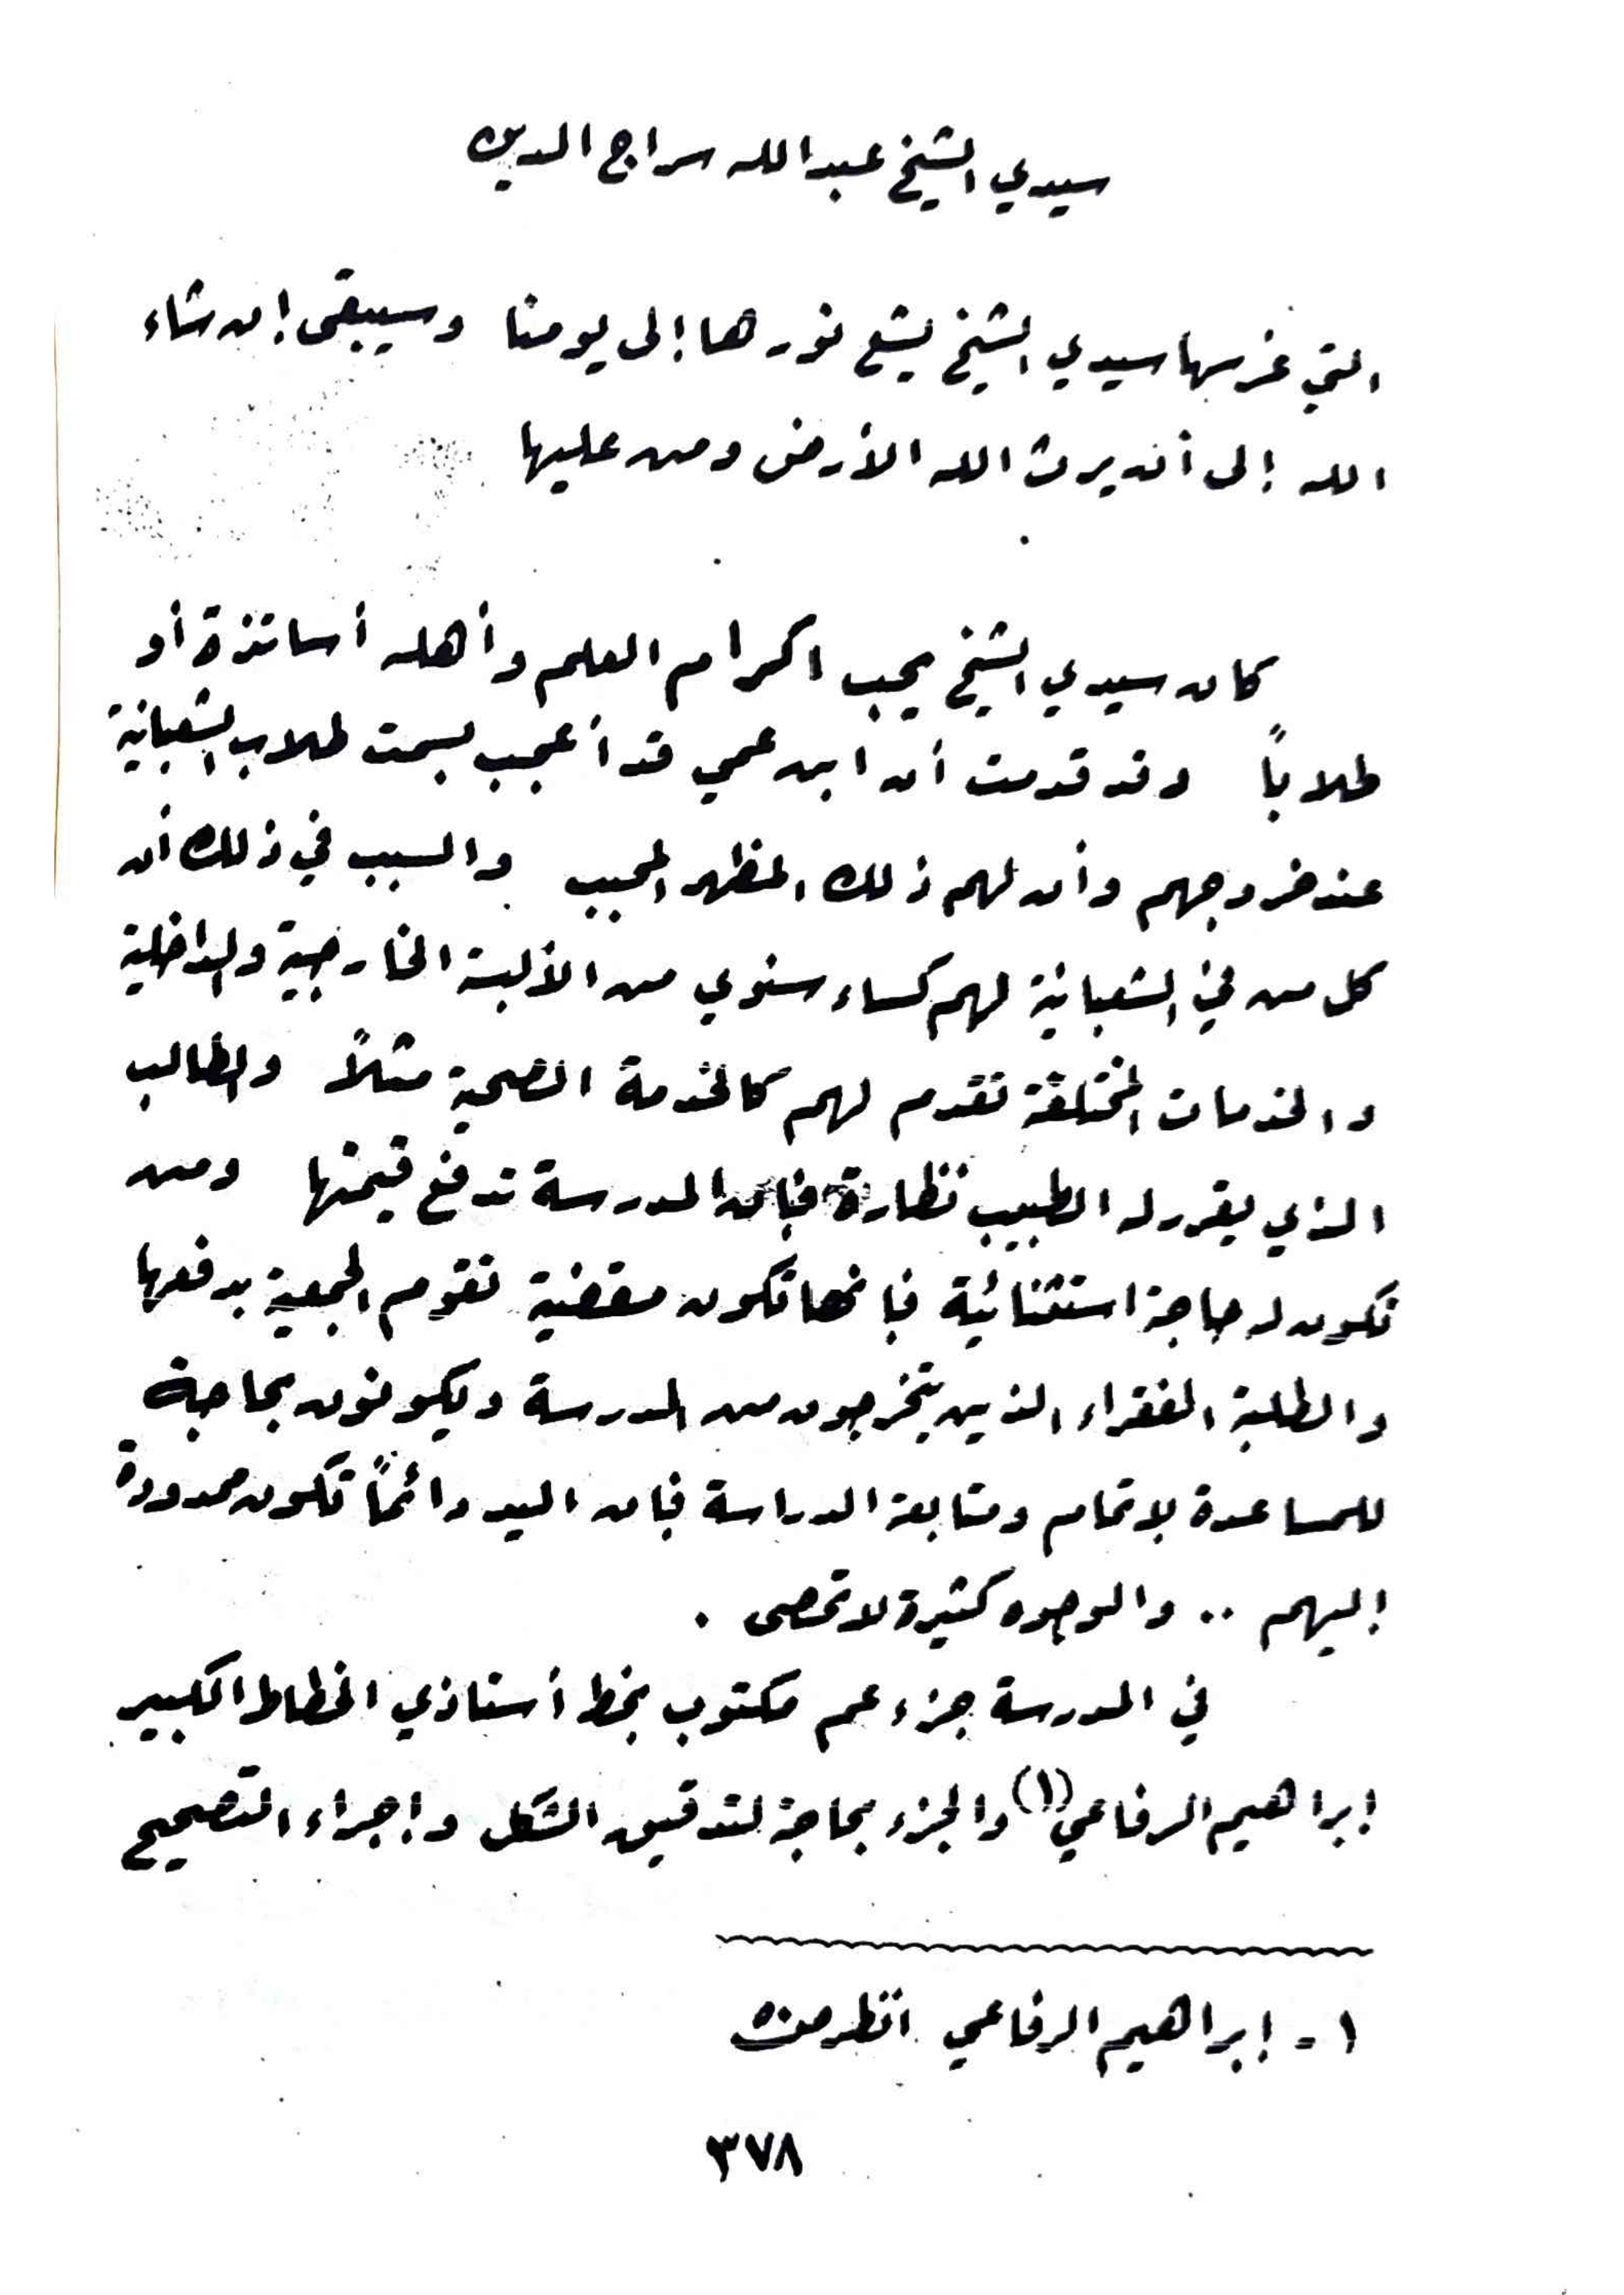 سيدي الشيخ عبد الله سراج الدين
التي غرسها سيدي الشيخ يشع نورها إلى يومنا وسيبقى إن شاء
الله إلى أن يرث الله الأرض ومن عليها
كان سيدي الشيخ يحب اكرام العلم وأهله أساتذة أو
طلاباً وقد قدمت أن ابن عمي قد أعجب بسمت طلاب الشعبانية
عند خروجهم وأن لهم ذلك المظهر المحبب والسبب في ذلك أن
كل من في الشعبانية لهم كساء سنوي من الألبسة الخارجية والداخلية
والخدمات المختلفة تقدم لهم كالخدمة الصحية مثلاً والطالب
الذي يقرر له الطبيب نظارة فإن المدرسة تدفع قيمتها ومن
تكون له حاجة استثنائية فإنها تكون مقضية تقوم الجمعية بدفعها
والطلبة الفقراء الذين يتخرجون من المدرسة ويكونون بحاجة
للمساعدة لاتمام ومتابعة الدراسة فإن اليد دائماً تكون ممدودة
إليهم .. والوجوه كثيرة لا تحصى .
في المدرسة جزء عم مكتوب بخط أستاذي الخطاط الكبير
إبراهيم الرفاعي (١) والجزء بحاجة لتدقيق الشكل وإجراء التصحيح
١ - إبراهيم الرفاعي انظر
٣٧٨